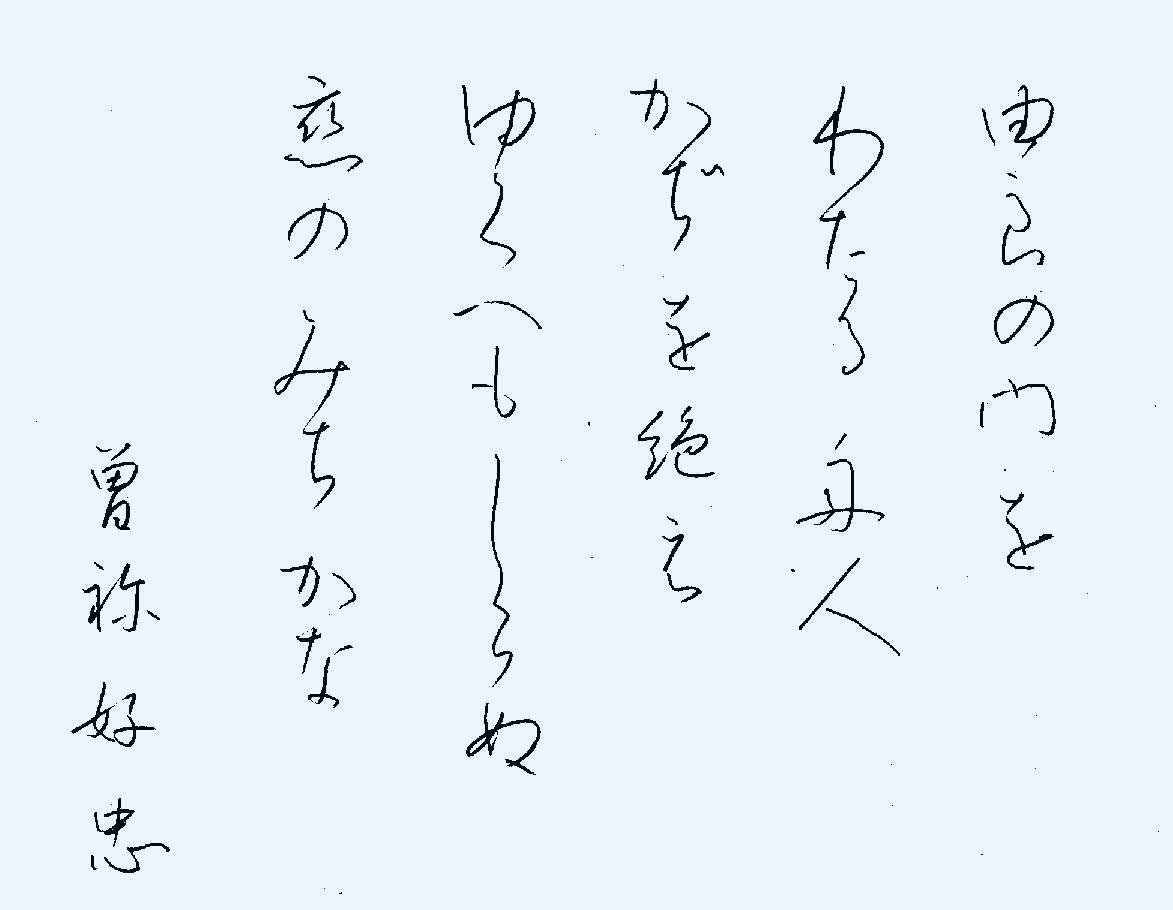 由良の門を
わたる舟人
かぢを絶え
ゆくへもしらぬ
恋のみちかな
曽祢好忠